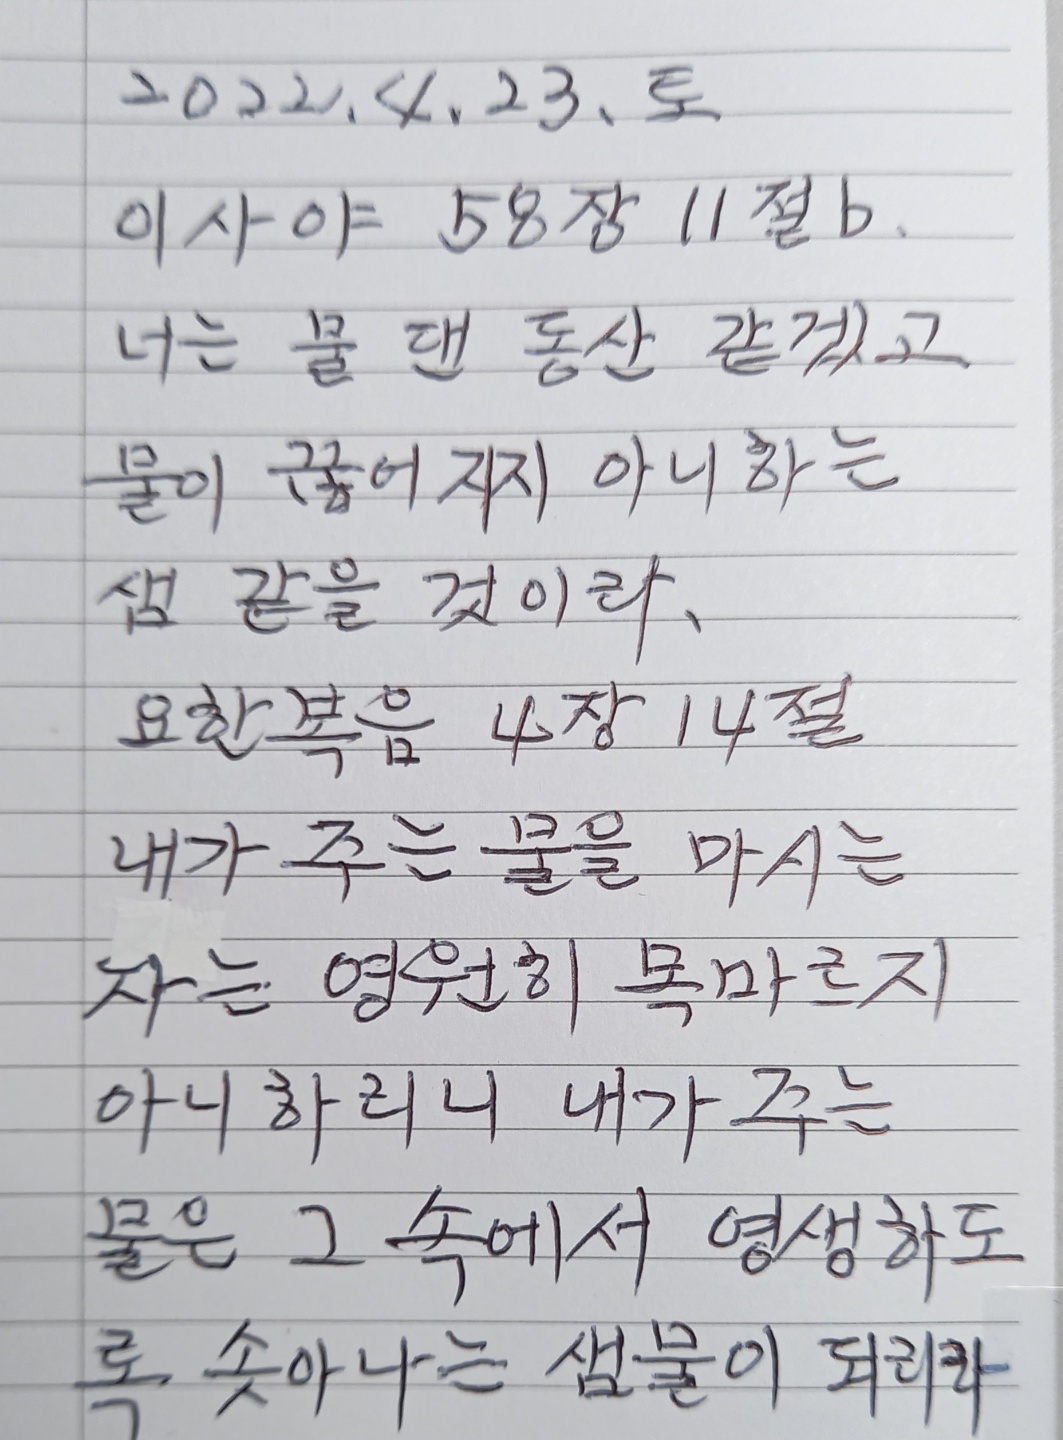 2022.4.23.토
이사야 58장 11절b.
너는 물 댄 동산 같겠고
물이 끊어지지 아니하는
샘 같을 것이라.
요한복음 4장 14절
내가 주는 물을 마시는
자는 영원히 목마르지
아니하리니 내가 주는
물은 그 속에서 영생하도
록 솟아나는 샘물이 되리라